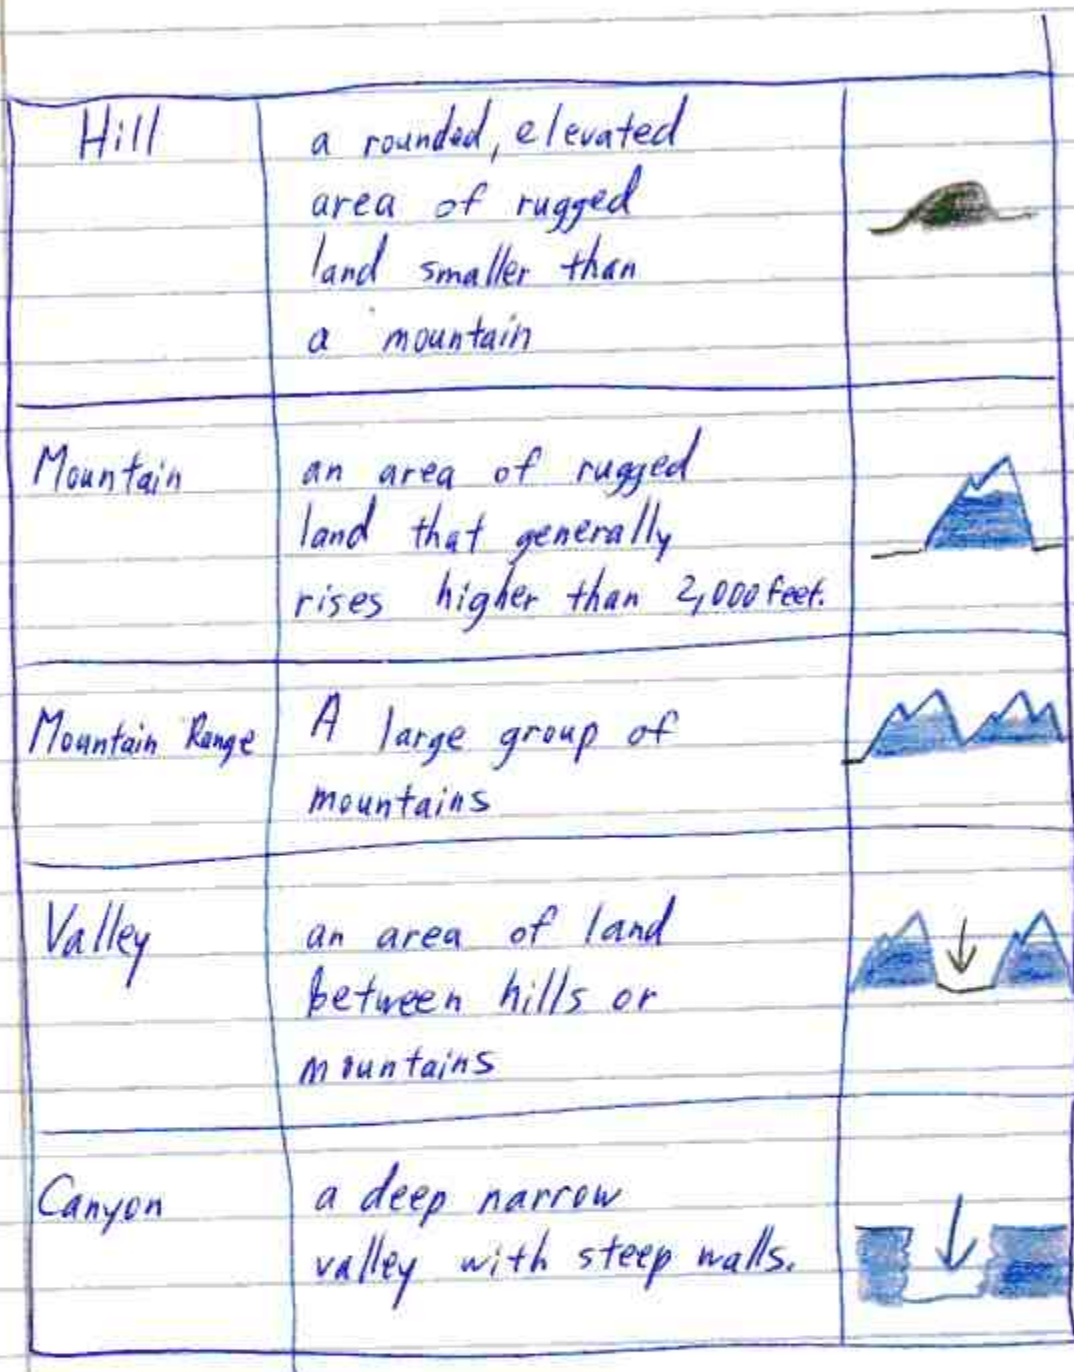 Hill
a rounded, elevated
area of rugged
land smaller than
a mountain
Mountain
an area of rugged
land that generally
rises higher than 2,000 feet.
Mountain Range
A large group of
mountains
Valley
an area of land
between hills or
mountains
Canyon
a deep narrow
valley with steep walls.